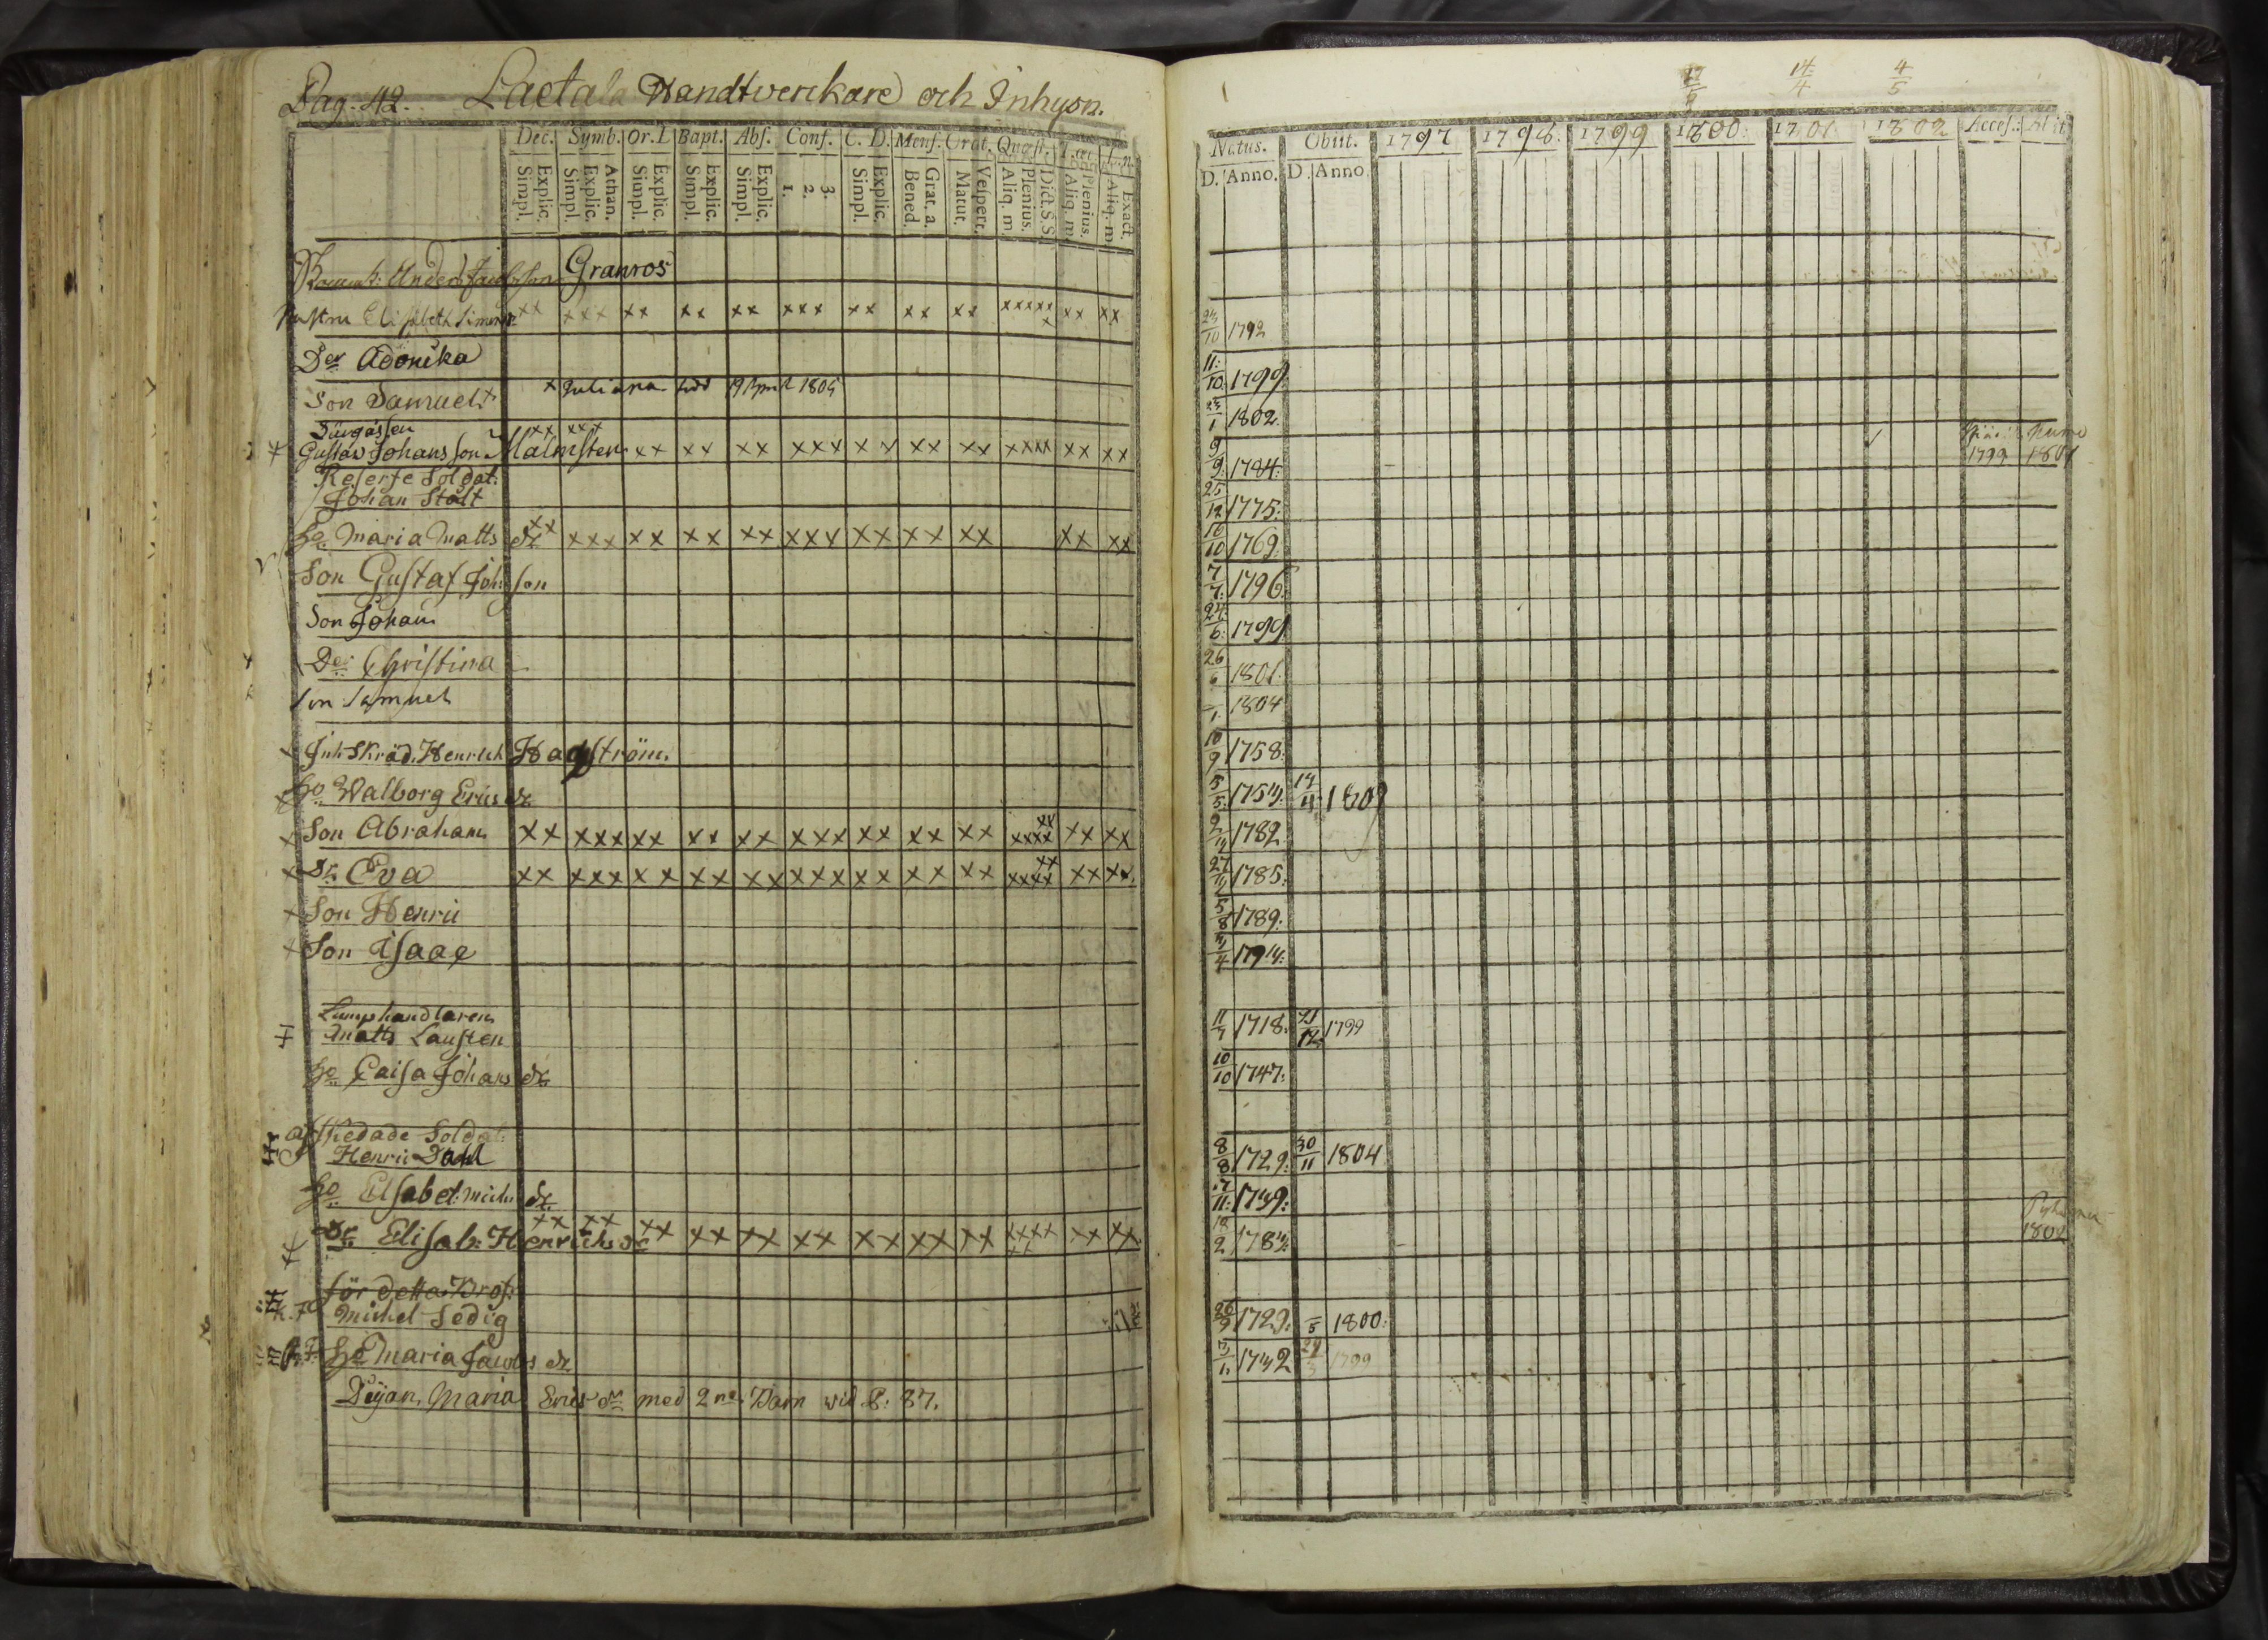 Pag. 42. Laetala Handtverckare och Inhysn.
Dec. Symb. Or. D Bapt. Abs. Conf. C. D. Mens. Orat. Quæst.
Explic. Simpl. Athan. Explic. Simpl. Explic. Simpl. Explic. Simpl. Explic. Simpl. 3. 2. 1. Explic. Simpl. Grat. a. Bened. Vespert. Matut. Dict. S. S. Plenius. Aliq. m Plenius. Aliq. m Exact. Aliq. m
Anders Jacobsson Granros
Hustru Elisabeth Simons xx xxx xx xx xx xxx xx xx xx xxxxx x xx xx
Dr Adonika
Son Samuel + x Juliana född 19 April 1805
xx xxx
Gustav Johansson Malmsten xx xx xx xxx xx xx xx xxxx xx xx
Reserfe Soldat.
Johan Stålt
Ho Maria Matts dr xx xxx xx xx xx xxx xx xx xx xx xx
Son Gustaf Joh:son
Son Johan
Dr Christina
Son Samuel
Inh. Skräd. Henrich Hagström.
Ho Walborg Erics dr
Son Abraham xx xxx xx xx xx xxx xx xx xx xx xxxx xx xx
Dr. Eva xx xxx xx xx xx xxx xx xx xx xx xxxx xx xx
Son Henric
Son Isaac
Lumphandlaren
Matts Lausten
Ho Caisa Johans dr
afskedade Soldat:
Henric Dahl
Ho Elsabet: Mich: dr.
Dr. Elisab: Henrichs dr xx xx xx xx xx xx xx xx xx xxxx xx xx xx
för detta Prof:
Michel Sedig
Ho Maria Jacobs dr
Pigan, Maria Erics dr med 2ne Barn wid P: 87.
17/6 14/4 4/5
Natus. Obiit. 1797 1798. 1799 1800. 1701. 1802 Acces. Abiit
D. Anno. D. Anno
1792
11/10 1799
1802.
9/9 1784.
1799 1801
25/12 1775.
16/10 1769.
7/7 1796.
24/6 1799
26 1801.
1. 1804
10/9 1758.
5/5 1754. 14/11 1809
2 1782
27 1785.
5/8 1789.
4 1794.
11 1718. 21/12 1799
10/10 1747.
8/8 1729. 30/11 1804
11. 1739.
18/2 1784. 1802
26/9 1729. /5 1800.
1. 1732 1799